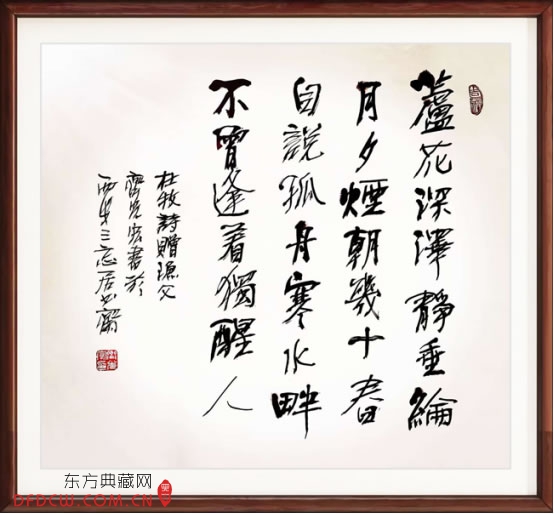 蘆花深澤靜垂綸
月夕煙朝幾十春
自說孤舟寒水畔
不曾逢着獨醒人
杜牧詩贈漁父
書於
三忘居
东方典藏网
DFDCW.COM.CN